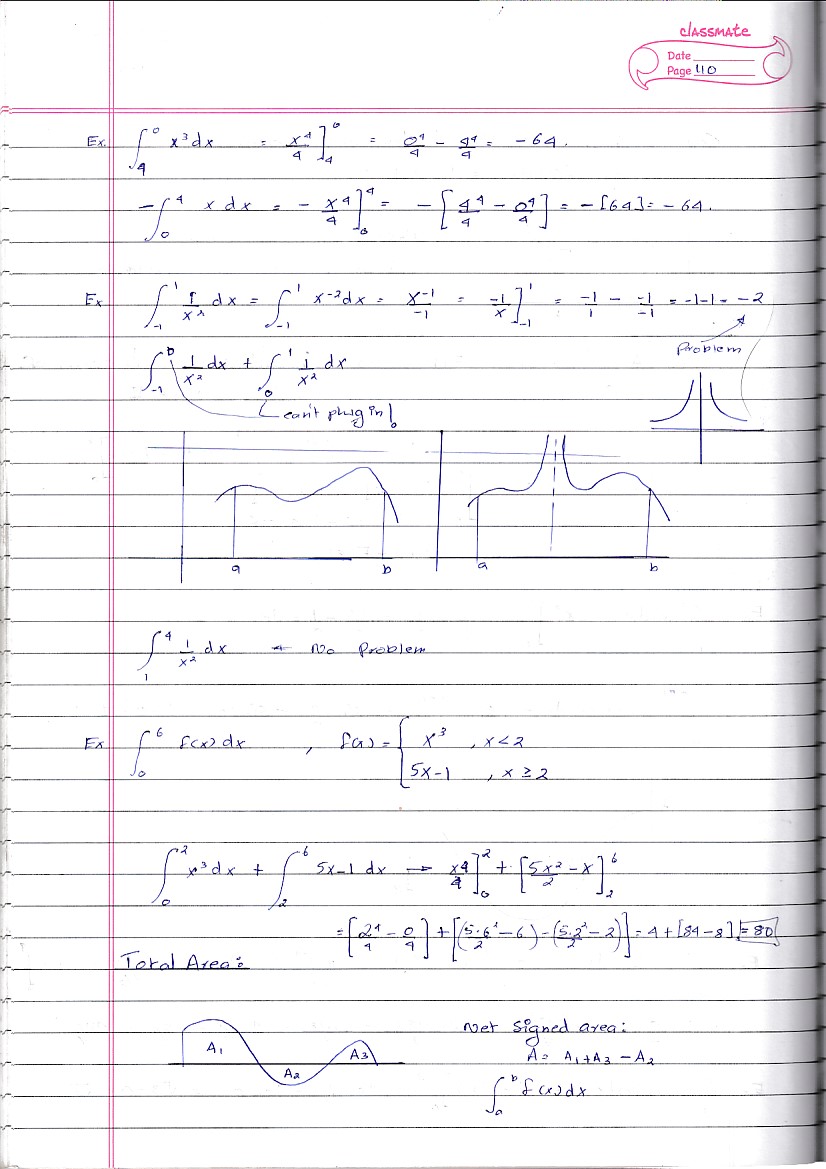 classmate
Date
Page 40
Ex. ∫₄⁰ x³dx = x⁴/4]₄⁰ = 0⁴/4 - 4⁴/4 = -64.
-∫₀⁴ x dx = - x⁴/4]₀⁴ = -[4⁴/4 - 0⁴/4] = -[64] = -64.
Ex ∫₋₁¹ 1/x² dx = ∫₋₁¹ x⁻² dx = x⁻¹/-1 = -1/x]₋₁¹ = -1/1 - -1/-1 = -1-1 = -2
Problem
∫₋₁⁰ 1/x² dx + ∫₀¹ 1/x² dx
can't plug in!
a b a b
∫₁⁴ 1/x² dx → No Problem
Ex ∫₀⁶ f(x) dx , f(x) = { x³ , x<2
5x-1 , x ≥ 2
∫₀² x³dx + ∫₂⁶ 5x-1 dx → x⁴/4]₀² + [5x²/2 - x]₂⁶
= [2⁴/4 - 0/4] + [(5·6²/2 - 6) - (5·2²/2 - 2)] = 4 + [84-8] = 80
Total Area:
Net Signed area:
A₁ A₂ A₃
A = A₁+A₃ - A₂
∫ₐᵇ f(x)dx